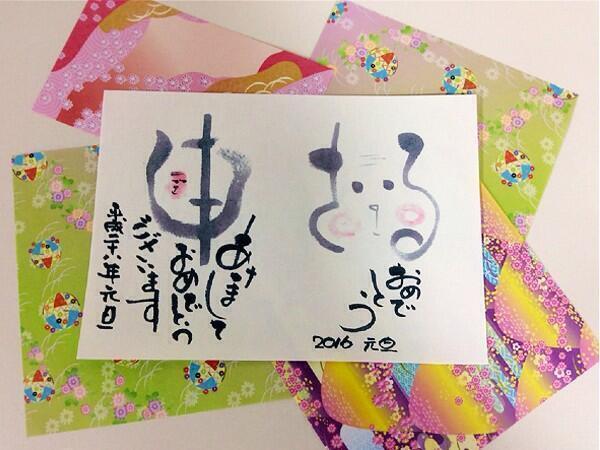 さる
おめで
とう
2016 元旦
申
あけ
まして
おめでとう
ございます
平成二十八年元旦